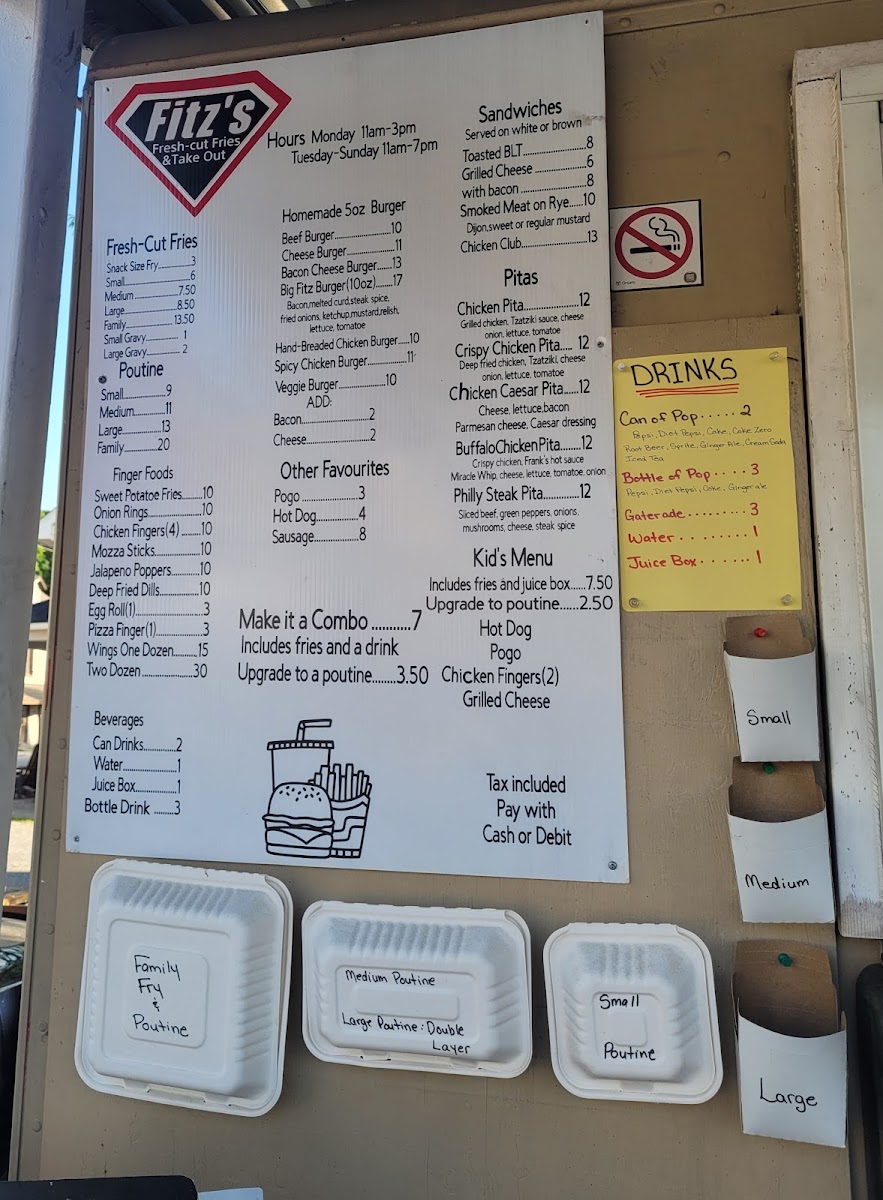 Fitz's
Fresh-cut Fries
& Take Out
Hours Monday 11am-3pm
Tuesday-Sunday 11am-7pm
Fresh-Cut Fries
Snack Size Fry..............3
Small..............6
Medium..............7.50
Large..............8.50
Family..............13.50
Small Gravy.............. 1
Large Gravy.............. 2
Poutine
Small..............9
Medium..............11
Large..............13
Family..............20
Finger Foods
Sweet Potatoe Fries........10
Onion Rings..............10
Chicken Fingers(4) .......10
Mozza Sticks..............10
Jalapeno Poppers..........10
Deep Fried Dills..............10
Egg Roll(1)..............3
Pizza Finger(1)..............3
Wings One Dozen..........15
Two Dozen ..............30
Beverages
Can Drinks............2
Water..............1
Juice Box............1
Bottle Drink ........3
Homemade 5oz Burger
Beef Burger..............10
Cheese Burger..............11
Bacon Cheese Burger......13
Big Fitz Burger(10oz).......17
Bacon,melted curd,steak spice,
fried onions, ketchup,mustard,relish,
lettuce, tomatoe
Hand-Breaded Chicken Burger....10
Spicy Chicken Burger..............11
Veggie Burger..............10
ADD:
Bacon..............2
Cheese..............2
Other Favourites
Pogo ..............3
Hot Dog..............4
Sausage..............8
Make it a Combo ...........7
Includes fries and a drink
Upgrade to a poutine........3.50
Sandwiches
Served on white or brown
Toasted BLT..............8
Grilled Cheese ..............6
with bacon ..............8
Smoked Meat on Rye.....10
Dijon,sweet or regular mustard
Chicken Club..............13
Pitas
Chicken Pita..............12
Grilled chicken, Tzatziki sauce, cheese
onion, lettuce, tomatoe
Crispy Chicken Pita..... 12
Deep fried chicken, Tzatziki, cheese
onion, lettuce, tomatoe
Chicken Caesar Pita.....12
Cheese, lettuce,bacon
Parmesan cheese, Caesar dressing
BuffaloChickenPita........12
Crispy chicken, Frank's hot sauce
Miracle Whip, cheese, lettuce, tomatoe, onion
Philly Steak Pita............12
Sliced beef, green peppers, onions,
mushrooms, cheese, steak spice
Kid's Menu
Includes fries and juice box......7.50
Upgrade to poutine......2.50
Hot Dog
Pogo
Chicken Fingers(2)
Grilled Cheese
Tax included
Pay with
Cash or Debit
DRINKS
Can of Pop ..... 2
Pepsi, Diet Pepsi, Coke, Coke Zero
Root Beer, Sprite, Ginger Ale, Cream Soda
Iced Tea
Bottle of Pop .... 3
Pepsi, Diet Pepsi, Coke, Gingerale
Gaterade ........ 3
Water ......... 1
Juice Box ...... 1
Small
Medium
Large
Family
Fry
&
Poutine
Medium Poutine
Large Poutine: Double
Layer
Small
Poutine